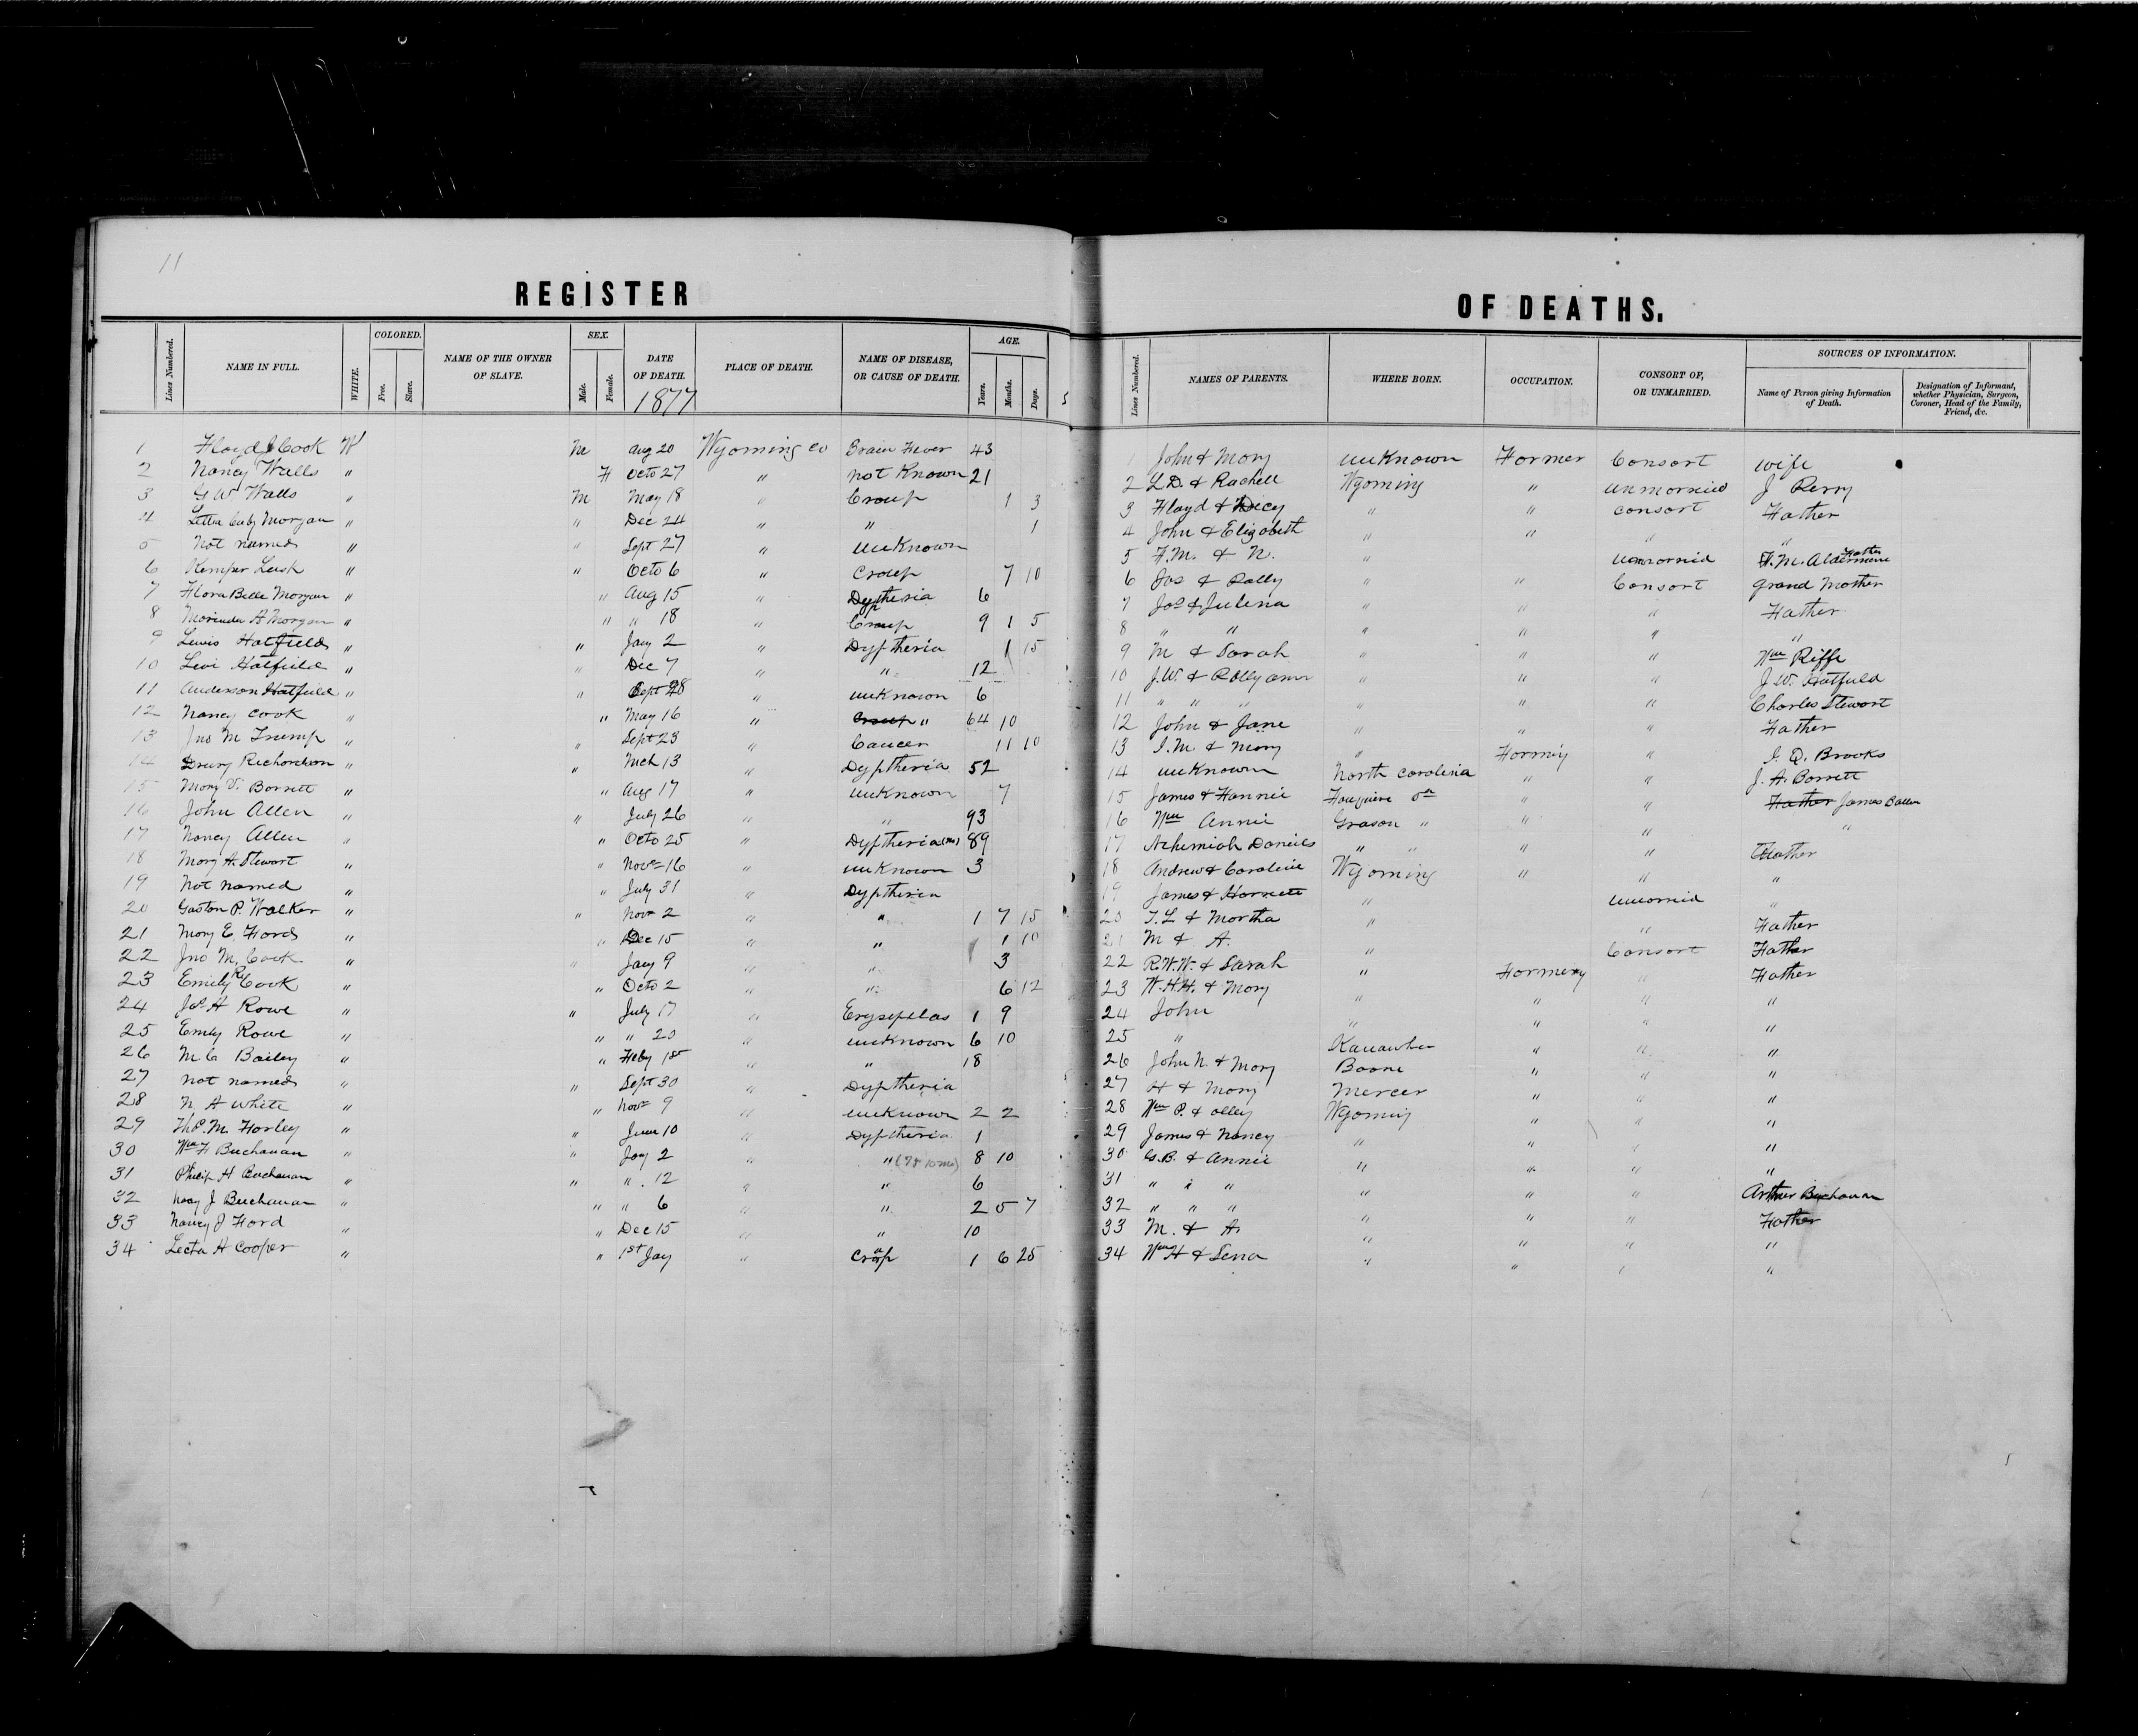 11
REGISTER OF DEATHS.
Lines Numbered. NAME IN FULL. WHITE. COLORED. Free. Slave. NAME OF THE OWNER OF SLAVE. SEX. Male. Female. DATE OF DEATH. 1877 PLACE OF DEATH. NAME OF DISEASE, OR CAUSE OF DEATH. AGE. Years. Months. Days.
1 Floyd J Cook W M Aug 20 Wyoming co Brain Fever 43
2 Nancy Walls " F Octo 27 " not Known 21
3 G W Walls " M May 18 " Croup 1 3
4 Morgan " " Dec 24 " " 1
5 Not named " " Sept 27 " unKnown
6 Kemper Lusk " " Octo 6 " Croup 7 10
7 Flora Belle Morgan " " Aug 15 " Dyptheria 6
8 Morinda A Morgan " " " 18 " Croup 9 1 5
9 Lewis Hatfield " " Jany 2 " Dyptheria 1 15
10 Levi Hatfield " " Dec 7 " " 12
11 Anderson Hatfield " " Sept 28 " unKnown 6
12 Nancy Cook " " May 16 " Croup " 64 10
13 Jno M Trump " " Sept 23 " Cancer 11 10
14 Drury Richardson " " Mch 13 " Dyptheria 52
15 Mary V. Barrett " " Aug 17 " unKnown 7
16 John Allen " " July 26 " " 93
17 Nancy Allen " " Octo 25 " Dyptheria 89
18 Mary A. Stewart " " Nov 16 " unKnown 3
19 Not named " " July 31 " Dyptheria
20 Gaston P. Walker " " Nov 2 " " 1 7 15
21 Mary E. Ford " " Dec 15 " " 1 10
22 Jno M. Cook " " Jany 9 " " 3
23 Emily R Cook " " Octo 2 " " 6 12
24 Jas H Rowe " " July 17 " Erysipelas 1 9
25 Emily Rowe " " " 20 " unKnown 6 10
26 M C Bailey " " Feby 1st " " 18
27 Not named " " Sept 30 " Dyptheria
28 N A White " " Nov 9 " unKnown 2 2
29 Tho. M. Farley " " June 10 " Dyptheria 1
30 Wm F Buchanan " " Jany 2 " " 8 10
31 Philip H Buchanan " " " 12 " " 6
32 J Buchanan " " " 6 " " 2 5 7
33 Nancy J Ford " " Dec 15 " " 10
34 Lecta H Cooper " " 1st Jany " Croup 1 6 25
Lines Numbered. NAMES OF PARENTS. WHERE BORN. OCCUPATION. CONSORT OF, OR UNMARRIED. SOURCES OF INFORMATION. Name of Person giving Information of Death. Designation of Informant, whether Physician, Surgeon, Coroner, Head of the Family, Friend, &c.
1 John & Mary unKnown Farmer Consort wife
2 L D. & Rachell Wyoming " unmarried J Perry
3 Floyd & Dicy " " consort Father
4 John & Elizabeth " " " "
5 F.M. & N. " unmarried F. M. Alderman Father
6 Jas & Polly " " Consort Grand Mother
7 Jas & Julina " " " Father
8 " " " " " "
9 M & Sarah " " " Wm Riffe
10 J.W. & Polly ann " " " J W. Hatfield
11 " " " " " " Charles Stewart
12 John & Jane " " " Father
13 I. M. & Mary " Farming " I. Q. Brooks
14 unKnown North Carolina " " J. A. Barrett
15 James & Fannie " " Father James
16 Wm Annie Grason " " " "
17 Nehemiah Daniels " " " " Father
18 Andrew & Caroline Wyoming " " "
19 James & " unmarried "
20 T. L & Martha " " Father
21 M & A. " Consort Father
22 R.W.W. & Sarah " Farmer " Father
23 W.H.H. & Mary " " " "
24 John " " " "
25 " Kanawha " " "
26 John N. & Mary Boone " " "
27 H & Mary Mercer " " "
28 Wm P. & olley Wyoming " " "
29 James & Nancy " " " "
30 G.B. & Annie " " " "
31 " " " " " " Arthur Buchanan
32 " " " " " " Father
33 M. & A. " " " "
34 Wm H & Lena " " " "